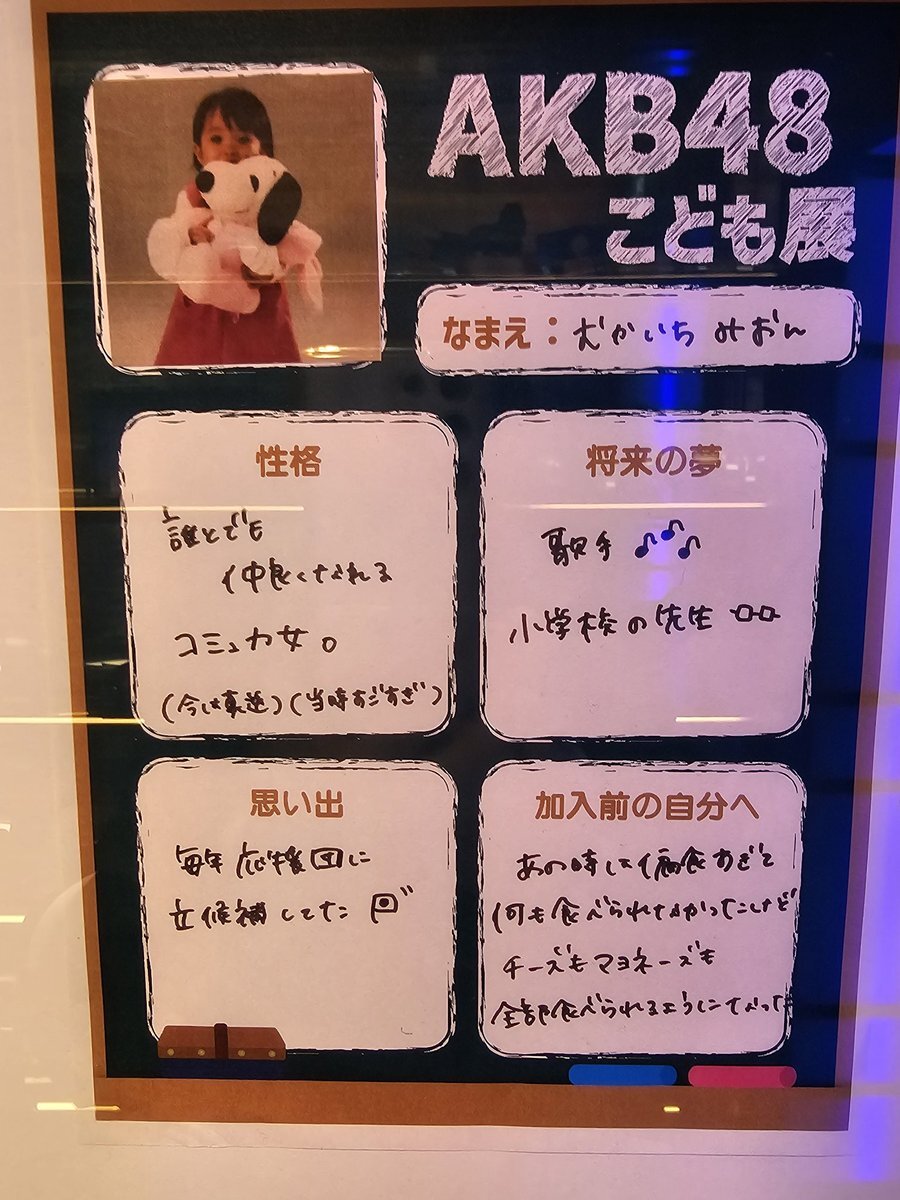 AKB48
こども展
なまえ：大かいち みおん
性格
誰とでも
仲良くなれる
コミュ力女。
(今は真逆)(当時すごすぎ)
将来の夢
歌手
小学校の先生
思い出
毎年 応援団に
立候補してた
加入前の自分へ
あの時は偏食すぎて
何も食べられなかったけど
チーズもマヨネーズも
全部食べられるようになった